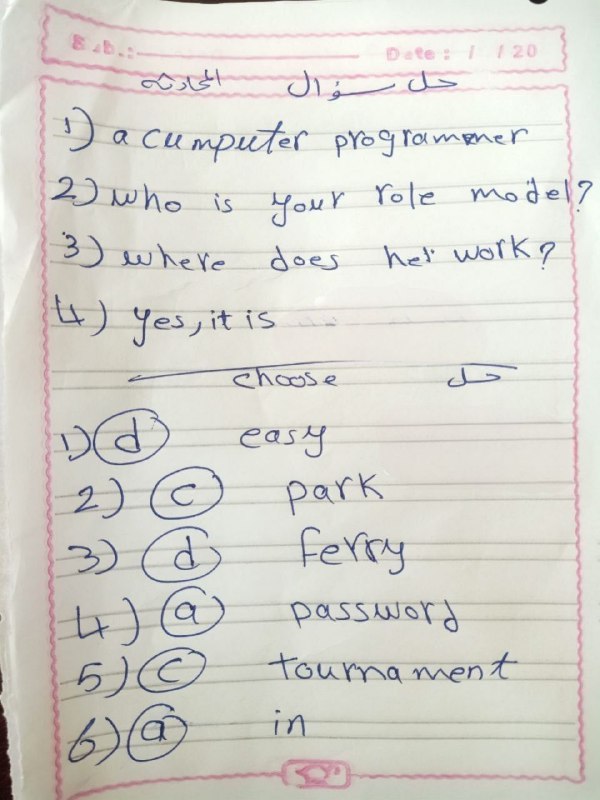 Sub.: Date: / / 20
حل سؤال المحادثة
1) a cumputer programmer
2) who is your role model?
3) where does her work?
4) yes, it is
حل choose
1) d easy
2) c park
3) d ferry
4) a password
5) c tournament
6) a in